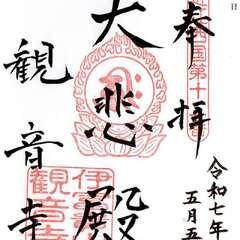 奉拝
令和七年
五月五
大悲殿
観音寺
国第十
観音寺